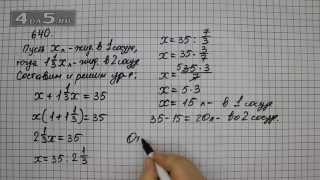 4da5.ru
640.
Пусть x л - жид. в 1 сосуде,
тогда 1⅓x л - жид. в 2 сосуде
Составим и решим ур-е:
x + 1⅓x = 35
x(1 + 1⅓) = 35
2⅓x = 35
x = 35 : 2⅓
x = 35 : 7/3
x = 35 · 3/7
x = 35·3/7
x = 5·3
x = 15 л - в 1 сосуде
35 - 15 = 20л - во 2 сосуде.
От